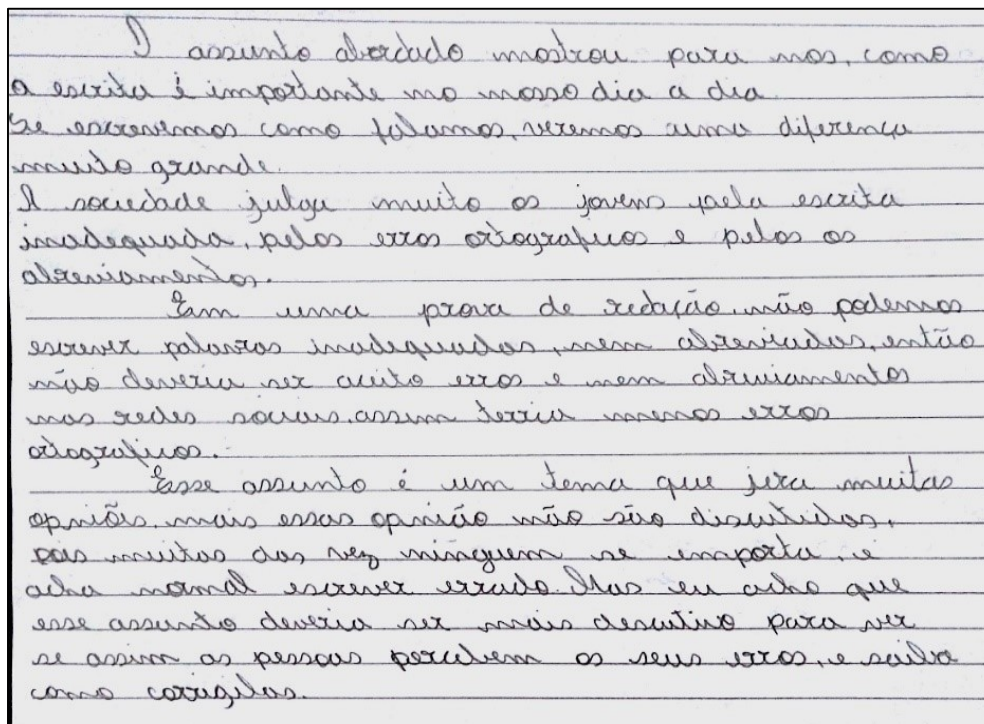 O assunto abordado mostrou para nos, como
a escrita é importante no nosso dia a dia
Se escrevemos como falamos, veremos uma diferença
muito grande.
A sociedade julga muito os jovens pela escrita
inadequada, pelos erros ortograficos e pelos os
abreviamentos.
Em uma prova de redação, não podemos
escrever palavras inadequadas, nem abreviadas, então
não deveria ser aceito erros e nem abreviamentos
nas redes sociais, assim terria menos erros
ortograficos.
Esse assunto é um tema que jera muitas
opniões, mais essas opnião não são discutidas,
pois muitas das vez ninguem se importa, e
acha normal escrever errado. Mas eu acho que
esse assunto deveria ser mais descutivo para ver
se assim as pessoas percebem os seus erros, e saiba
como corrigilas.